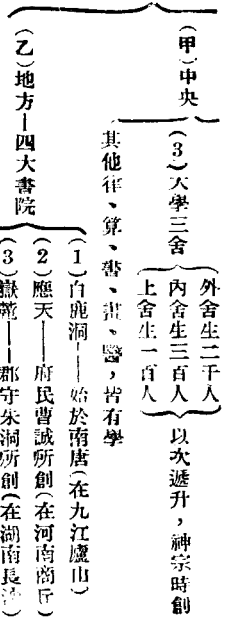 (甲)中央
(3)大學三舍
外舍生二千人
內舍生三百人
上舍生一百人
以次遞升，神宗時創
其他律、算、書、畫、醫，皆有學
(乙)地方—四大書院
(1)白鹿洞——始於南唐(在九江廬山)
(2)應天——府民曹誠所創(在河南商丘)
(3)嶽麓——郡守朱洞所創(在湖南長沙)